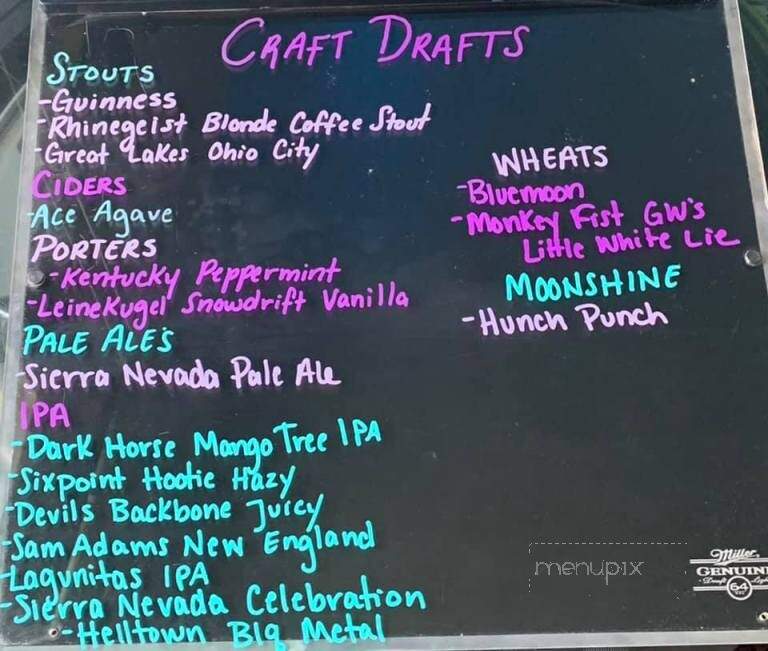 CRAFT DRAFTS
STOUTS
-Guinness
-Rhinegeist Blonde Coffee Stout
-Great Lakes Ohio City
CIDERS
-Ace Agave
PORTERS
-Kentucky Peppermint
-LeineKugel Snowdrift Vanilla
PALE ALE'S
-Sierra Nevada Pale Ale
IPA
-Dark Horse Mango Tree IPA
-Sixpoint Hootie Hazy
-Devils Backbone Juicy
-Sam Adams New England
-Lagunitas IPA
-Sierra Nevada Celebration
-Helltown Big Metal
WHEATS
-Bluemoon
-Monkey Fist GW's
Little White Lie
MOONSHINE
-Hunch Punch
menupix
Miller
GENUINE
Draft 64 Light